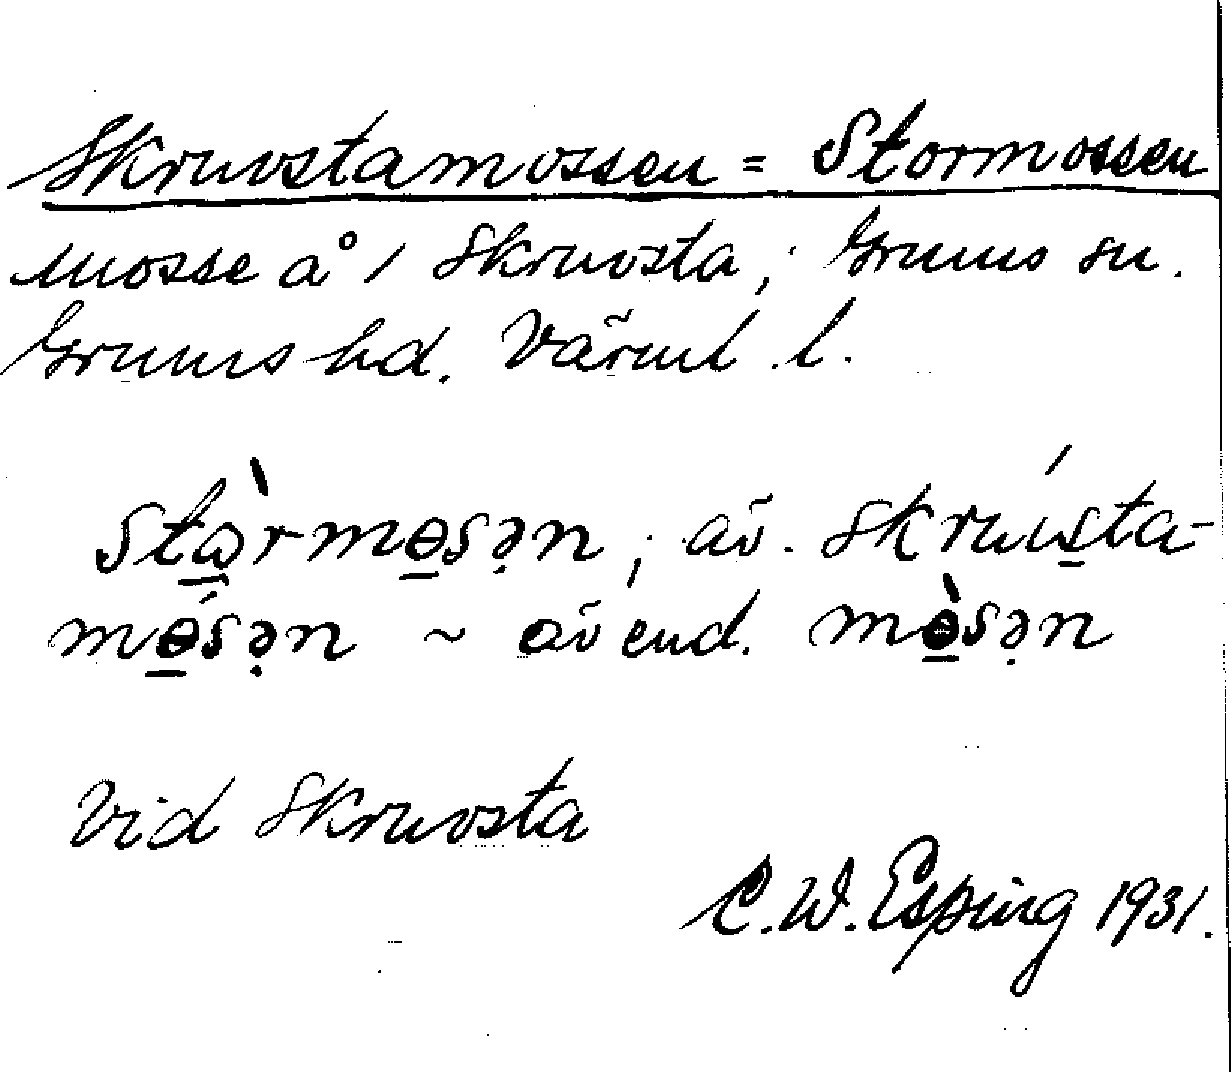 Skruvstamossen = Stormossen
mosse å 1 Skruvsta; Grums sn.
Grums hd. Värml. l.
stɷ̀rmɵsən; äv. skrússta-
mɵ́sən ~ äv end. mɵ̀sən
Vid Skruvsta
C.W. Esping 1931.